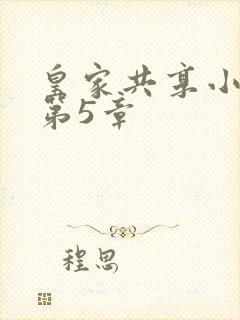 皇家共享小
第5章
程思